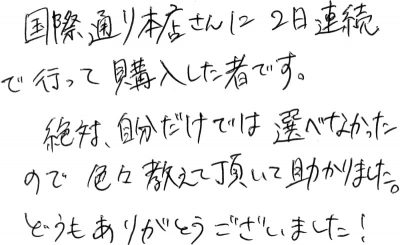 国際通り本店さんに 2日連続
で行って購入した者です。
絶対、自分だけでは選べなかった
ので 色々教えて頂いて助かりました。
どうもありがとうございました!